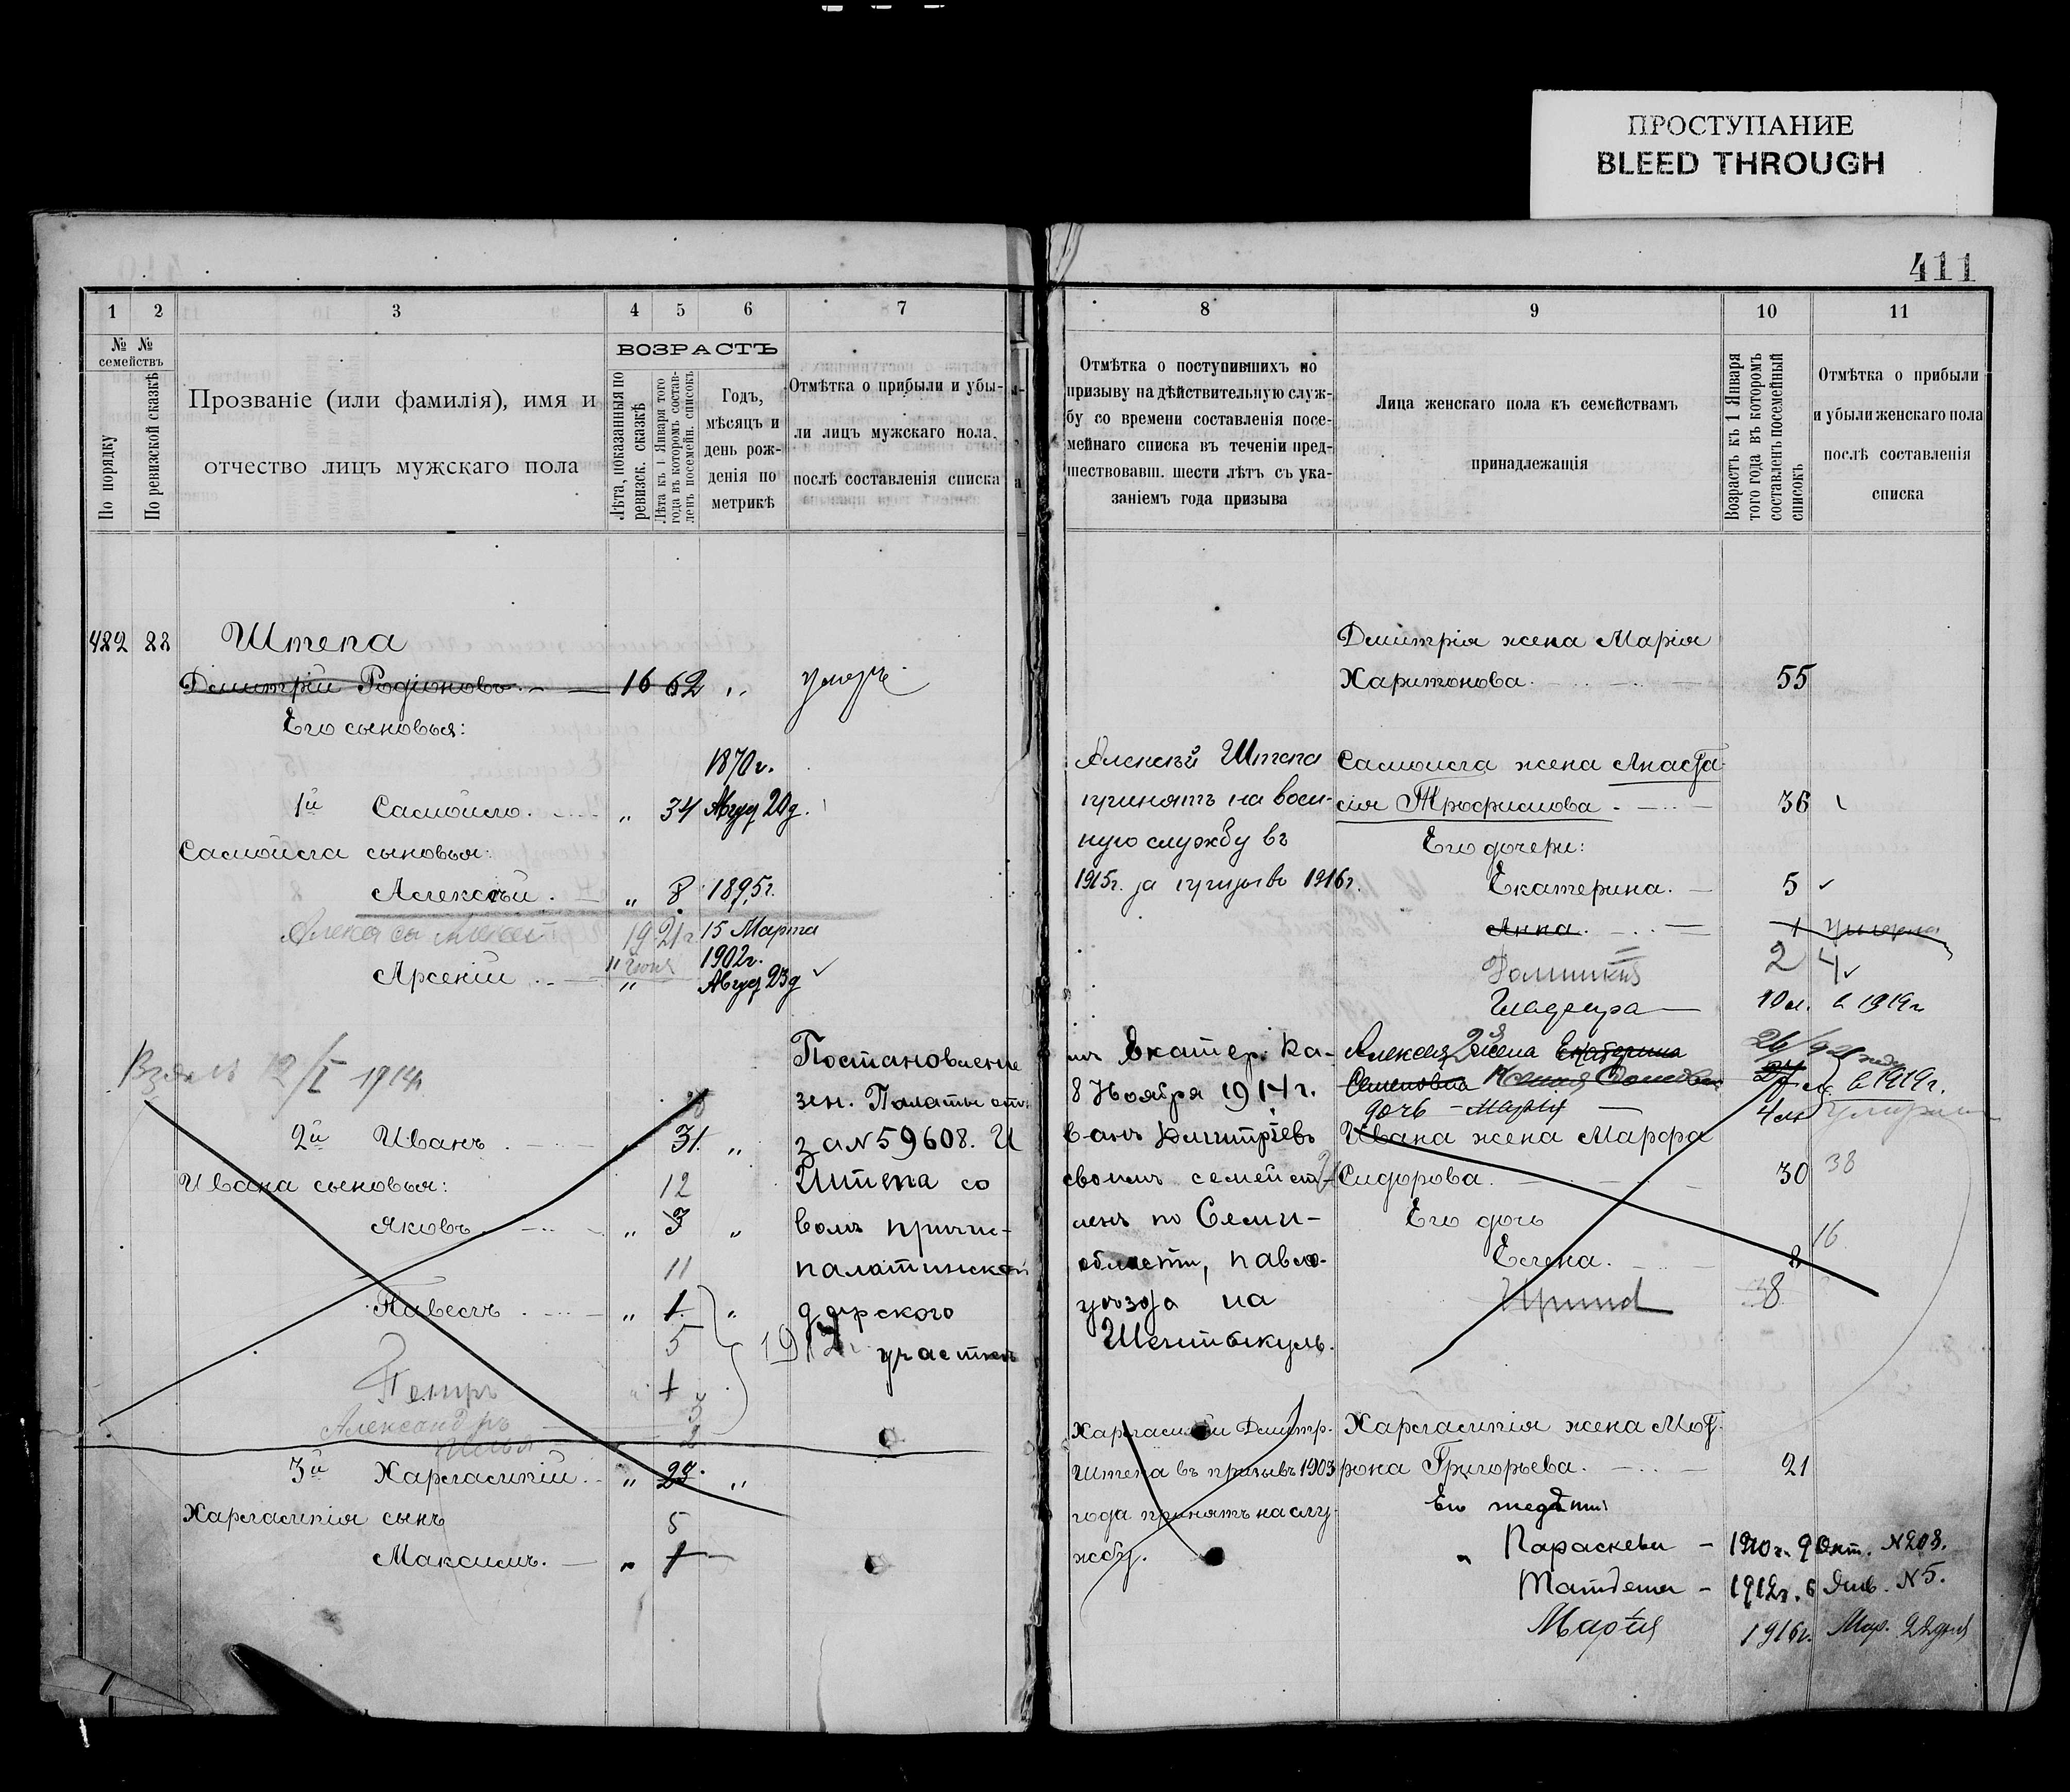 ПРОСТУПАНИЕ
BLEED THROUGH
411
1 2 3 4 5 6 7
№ №
семействъ
По порядку
По ревизской сказкѣ
Прозваніе (или фамилія), имя и
отчество лицъ мужскаго пола
ВОЗРАСТЪ
Лѣта, показанныя по
ревизск. сказкѣ
Лѣта къ 1 Января того
года въ которомъ состав-
ленъ посемейн. списокъ
Годъ,
мѣсяцъ и
день рож-
денія по
метрикѣ
Отмѣтка о прибыли и убы-
ли лицъ мужскаго пола,
послѣ составленія списка
482 88 Штепа
Дмитрій Родіоновъ 16 62 „
Его сыновья:
1870г.
1й Самойло. „ 34 Авгус 20д.
Самойла сыновья:
Алексѣй. „ 8 1895г.
19 21г 15 Марта
1902г.
Арсеній „ Авгус 23д
12/I 1914г
Постановленіе
зен. Палаты отъ
2й Иванъ. „ 31. „ за №59608. И
Ивана сыновья: 12 Штепа со
Яковъ „ 3 „ вомъ причис-
11 палатинской
Павелъ „ 1. „ дарского
5 1912г. участкѣ
Петръ 1
Александръ 3
Илья 2
3й Харлампій. „ 23. „
Харлампія сынъ 5
Максимъ. „ 1
8 9 10 11
Отмѣтка о поступившихъ по
призыву на дѣйствительную служ-
бу со времени составленія посе-
мейнаго списка въ теченіи пред-
шествовавш. шести лѣтъ съ ука-
заніемъ года призыва
Лица женскаго пола къ семействамъ
принадлежащія
Возрастъ къ 1 Января
того года въ которомъ
составленъ посемейный
списокъ
Отмѣтка о прибыли
и убыли женскаго пола
послѣ составленія
списка
Дмитрія жена Марія
Харитонова. 55
Алексѣй Штепа Самойла жена Анаста-
принятъ на воен- сія Трофимова. 36
ную службу въ Его дочери:
1915г. за призывъ 1916г. Екатерина. 5
Анна. 1 Умерла
2 4
10 м. в 1919г
Екатер. Ка- Алексея 2я жена Екатерина 26/
8 Ноября 1914г. Семеновна Ксения в 1919г.
дочь - Мария 4
ванъ Дмитріевъ Ивана жена Марфа
своимъ семейст- Сидорова. 30 38
ленъ по Семи- Его дочь
16
области, павло- Елена. 8
уѣзда на Ирина 38
Шептыкуль.
Харлампій Дмитр. Харлампія жена Мот-
Штепа въ призывъ 1903 рона Григорьева. 21
года принятъ на слу-
жбу. Параскева - 1910г. 9 Окт. №208.
Татьяна - 1912г. 6 Янв. №5.
Марія 1916г. Мар. 22дня